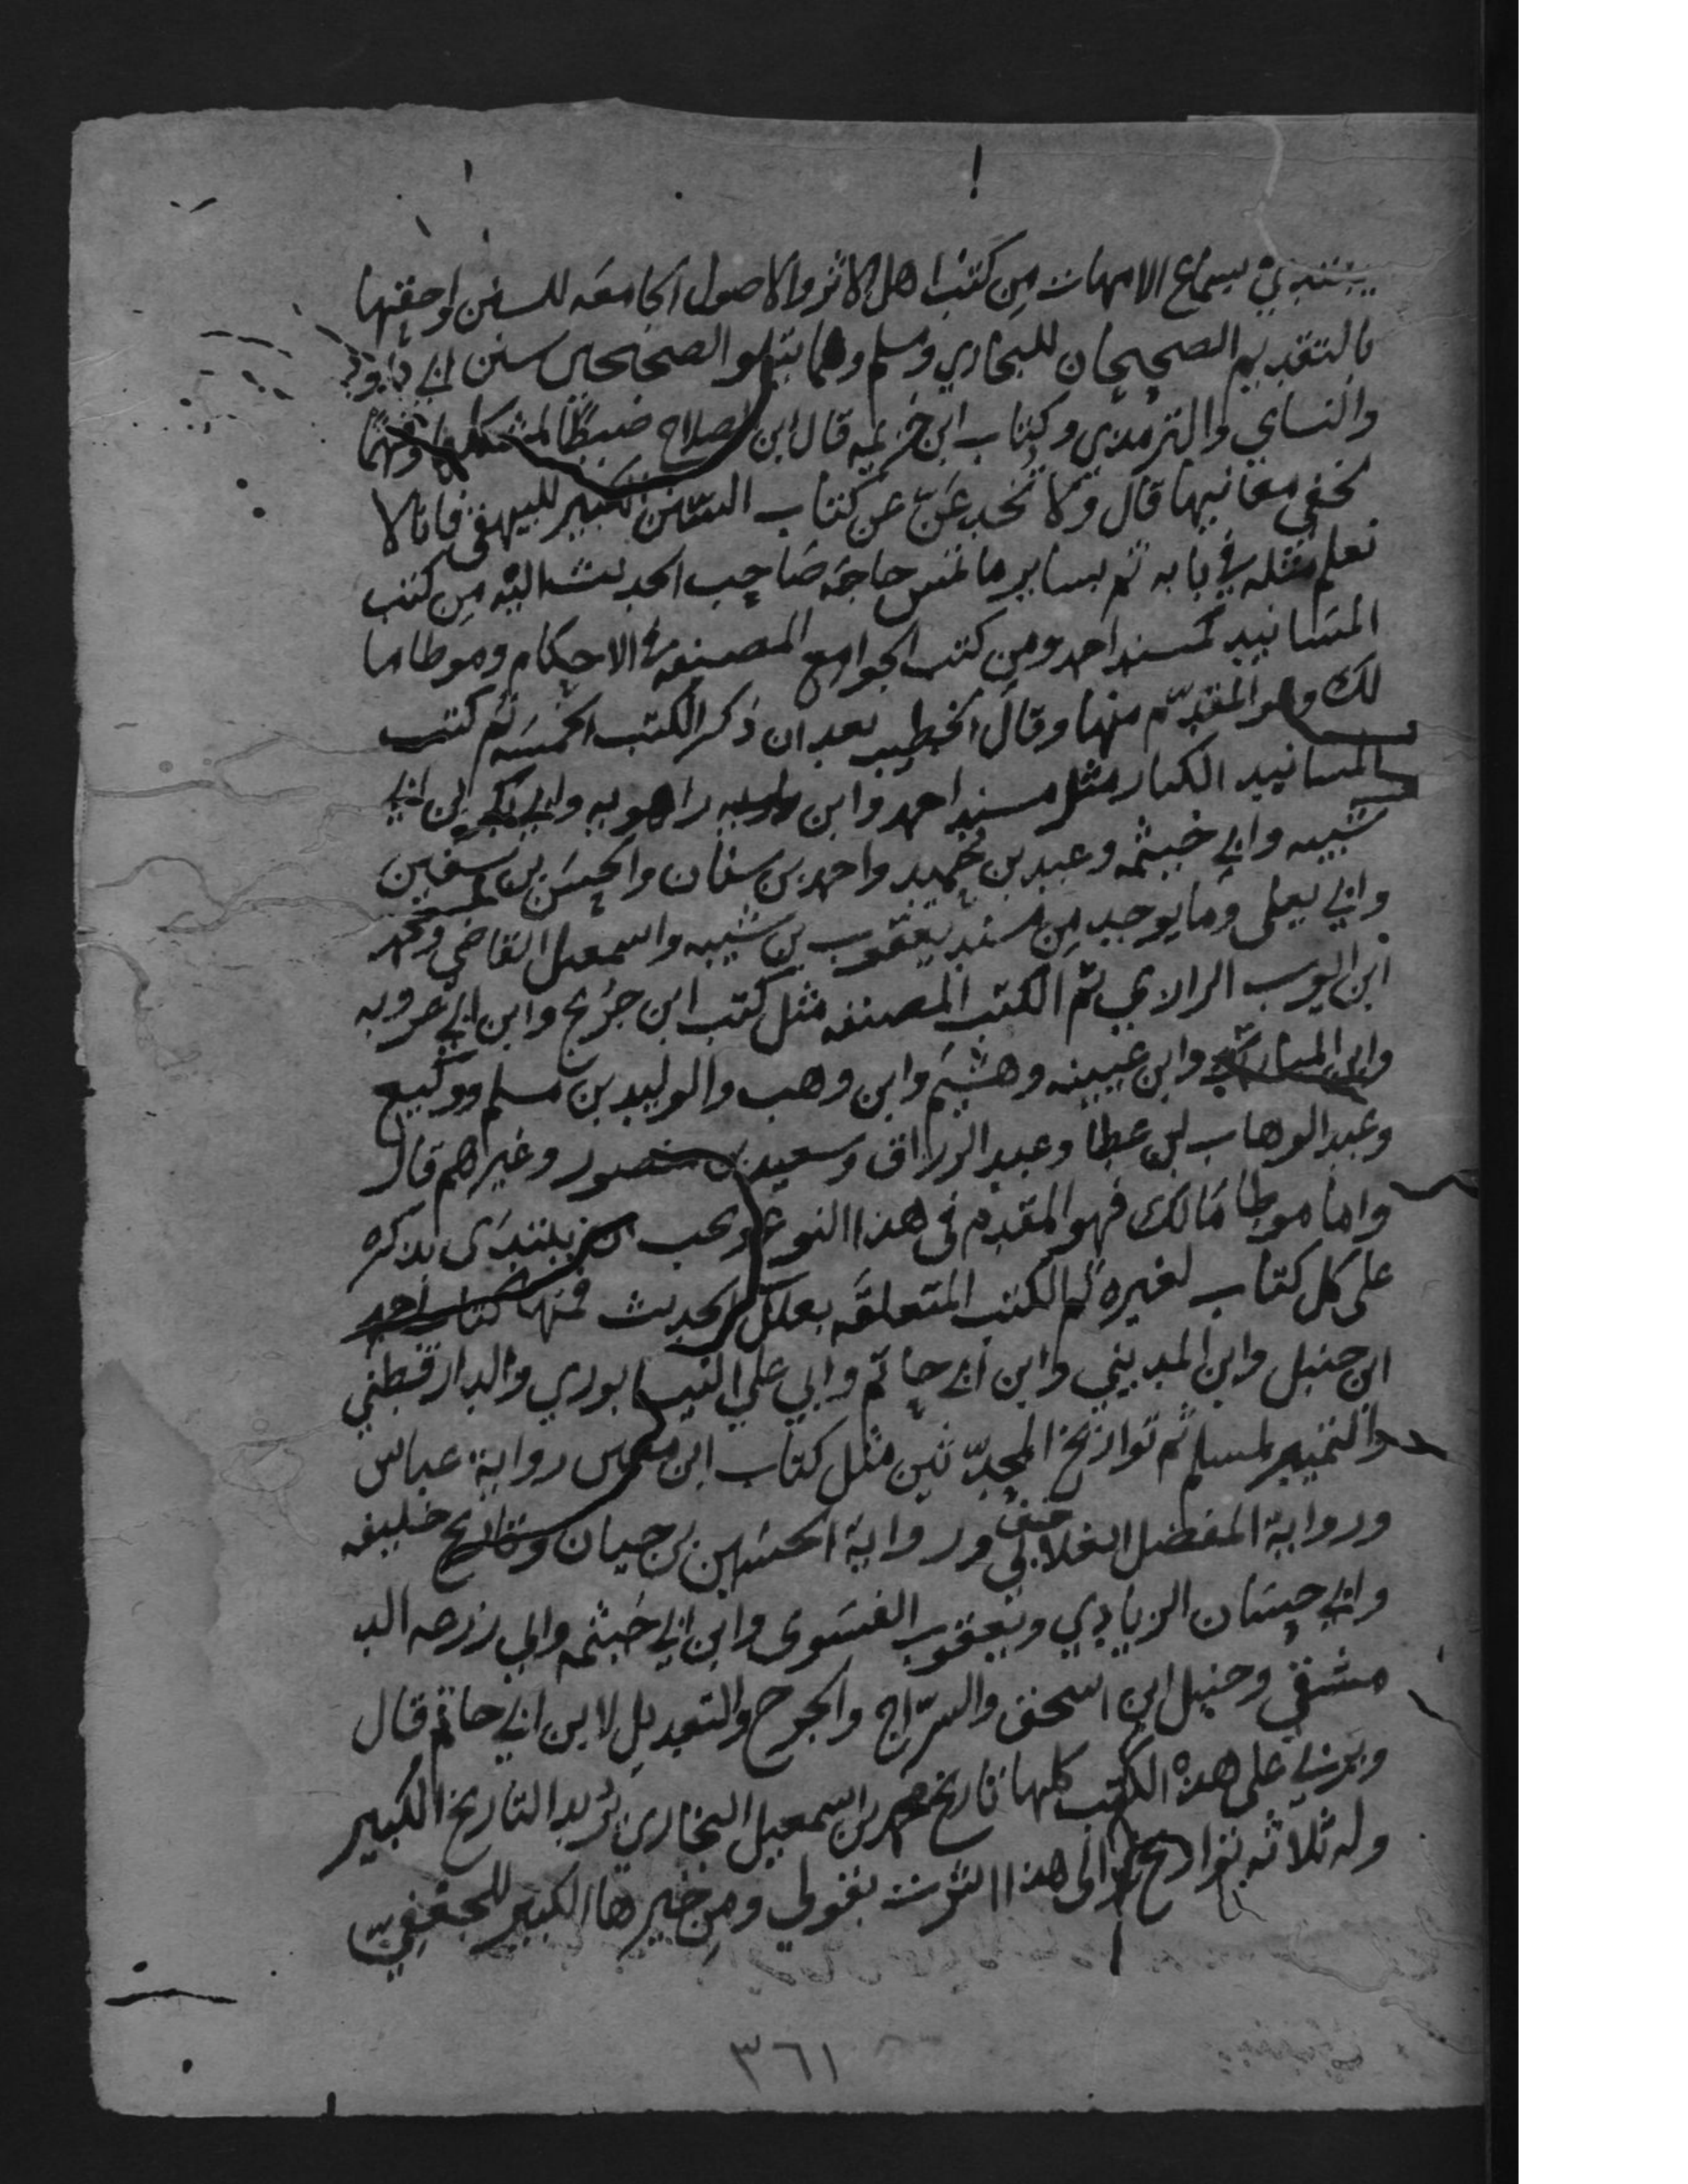 يبتدي بسماع الامهات من كتب اهل الاثر والاصول الجامعه للسنن واحقها
بالتقديم الصحيحان للبخاري ومسلم ومما يتلو الصحيحين سنن ابي داود
والنساي والترمذي وكتاب ابن خزيمه قال ابن الصلاح ضبطا لمشكلها وفهما
لخفي معانيها قال ولا تخدعن عن كتاب السنن الكبير للبيهقي فانا لا
نعلم مثله في بابه ثم بساير ما تمس حاجة صاحب الحديث اليه من كتب
المسانيد كمسند احمد ومن كتب الجوامع المصنفه في الاحكام وموطا ما
لك وهو المقدم منها وقال الخطيب بعد ان ذكر الكتب الخمسه ثم كتب
المسانيد الكبار مثل مسند احمد وابن راهويه وابي بكر ابن ابي
شيبه وابي خيثمه وعبد بن حميد واحمد بن سنان والحسن بن سفين
وابي يعلى وما يوجد من مسند يعقوب بن شيبه واسمعيل القاضي ومحمد
ابن ايوب الرازي ثم الكتب المصنفه مثل كتب ابن جريج وابن ابي عروبه
وابن المبارك وابن عيينه وهشيم وابن وهب والوليد بن مسلم ووكيع
وعبد الوهاب بن عطا وعبد الرزاق وسعيد بن منصور وغيرهم قال
واما موطا مالك فهو المقدم في هذا النوع ويجب ان يبتدى بذكره
على كل كتاب لغيره ثم الكتب المتعلقه بعلل الحديث فمنها كتاب احمد
ابن حنبل وابن المديني وابن ابي حاتم وابي علي النيسابوري والدارقطني
والتمييز لمسلم ثم تواريخ المحدثين مثل كتاب ابن معين رواية عباس
ورواية المفضل الغلابي ورواية الحسين بن حيان وتاريخ خليفه
وابي حسان الزيادي ويعقوب الفسوى وابن ابي خيثمه وابي زرعه الد
مشقي وحنبل ابن اسحق والسراج والجرح والتعديل لابن ابي حاتم قال
ويربي على هذه الكتب كلها تاريخ محمد بن اسمعيل البخاري يريد التاريخ الكبير
وله ثلاثه تواريخ والى هذا اشرت بقولي ومن خيرها الكبير للجعفي
٣٦١